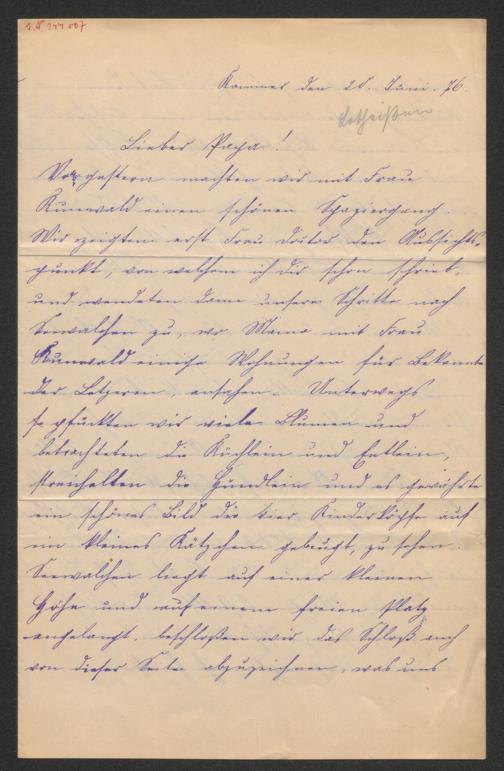 Kammer den 20. Juni. 76.
Lotheißen
Lieber Papa!
Vorgestern machten wir mit Frau
Kunwald einen schönen Spaziergang.
Wir zeigten erst Frau Doktor den Aussichts-
punkt, von welchem ich Dir schon schrieb,
und wendeten dann unsere Schritte nach
Seewalchen zu, wo Mama mit Frau
Kunwald einige Wohnungen für Bekannte
der Letzeren, ansehen. Unterwegs
pflückten wir viele Blumen und
betrachteten die Küchlein und Entlein,
streichelten die Hündlein und es gewährte
ein schönes Bild die vier Kinderköpfe auf
ein kleines Kätzchen gebeugt, zu sehen.
Seewalchen liegt auf einer kleinen
Höhe und auf einem freien Platz
angelangt, beschloßen wir das Schloß auch
von dieser Seite abzuzeichnen, was uns